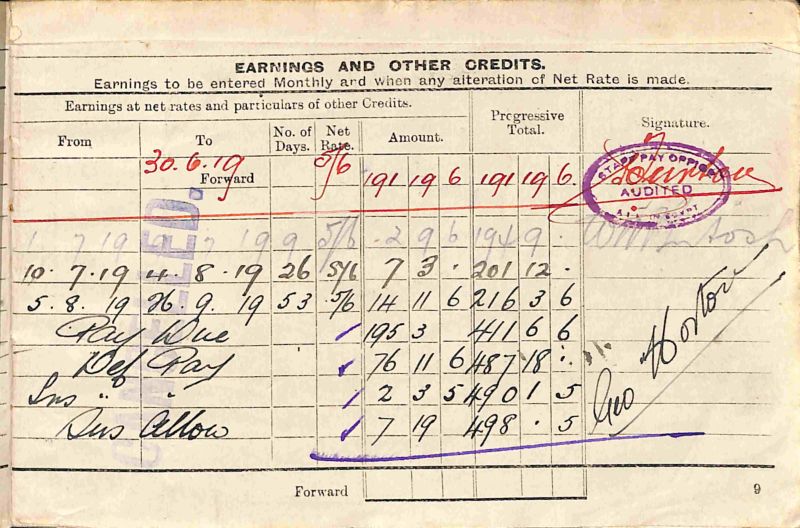 EARNINGS AND OTHER CREDITS.
Earnings to be entered Monthly and when any alteration of Net Rate is made.
Earnings at net rates and particulars of other Credits.
From To No. of Days. Net Rate. Amount. Progressive Total. Signature.
30.6.19 Forward 5/6 191 19 6 191 19 6.
STAFF PAY OFFICE
AUDITED
A.I.F. IN EGYPT
CANCELLED.
1 7 19 7 19 9 5/6 2 9 6 194 9
10.7.19 4.8.19 26 5/6 7 3 . 201 12 .
5.8.19 26.9.19 53 5/6 14 11 6 216 3 6
Pay Due 195 3 411 6 6
Def Pay 76 11 6 487 18 .
Ins " " 2 3 5 490 1 5
Sus Allow 7 19 498 . 5
Geo Horton
Forward
9